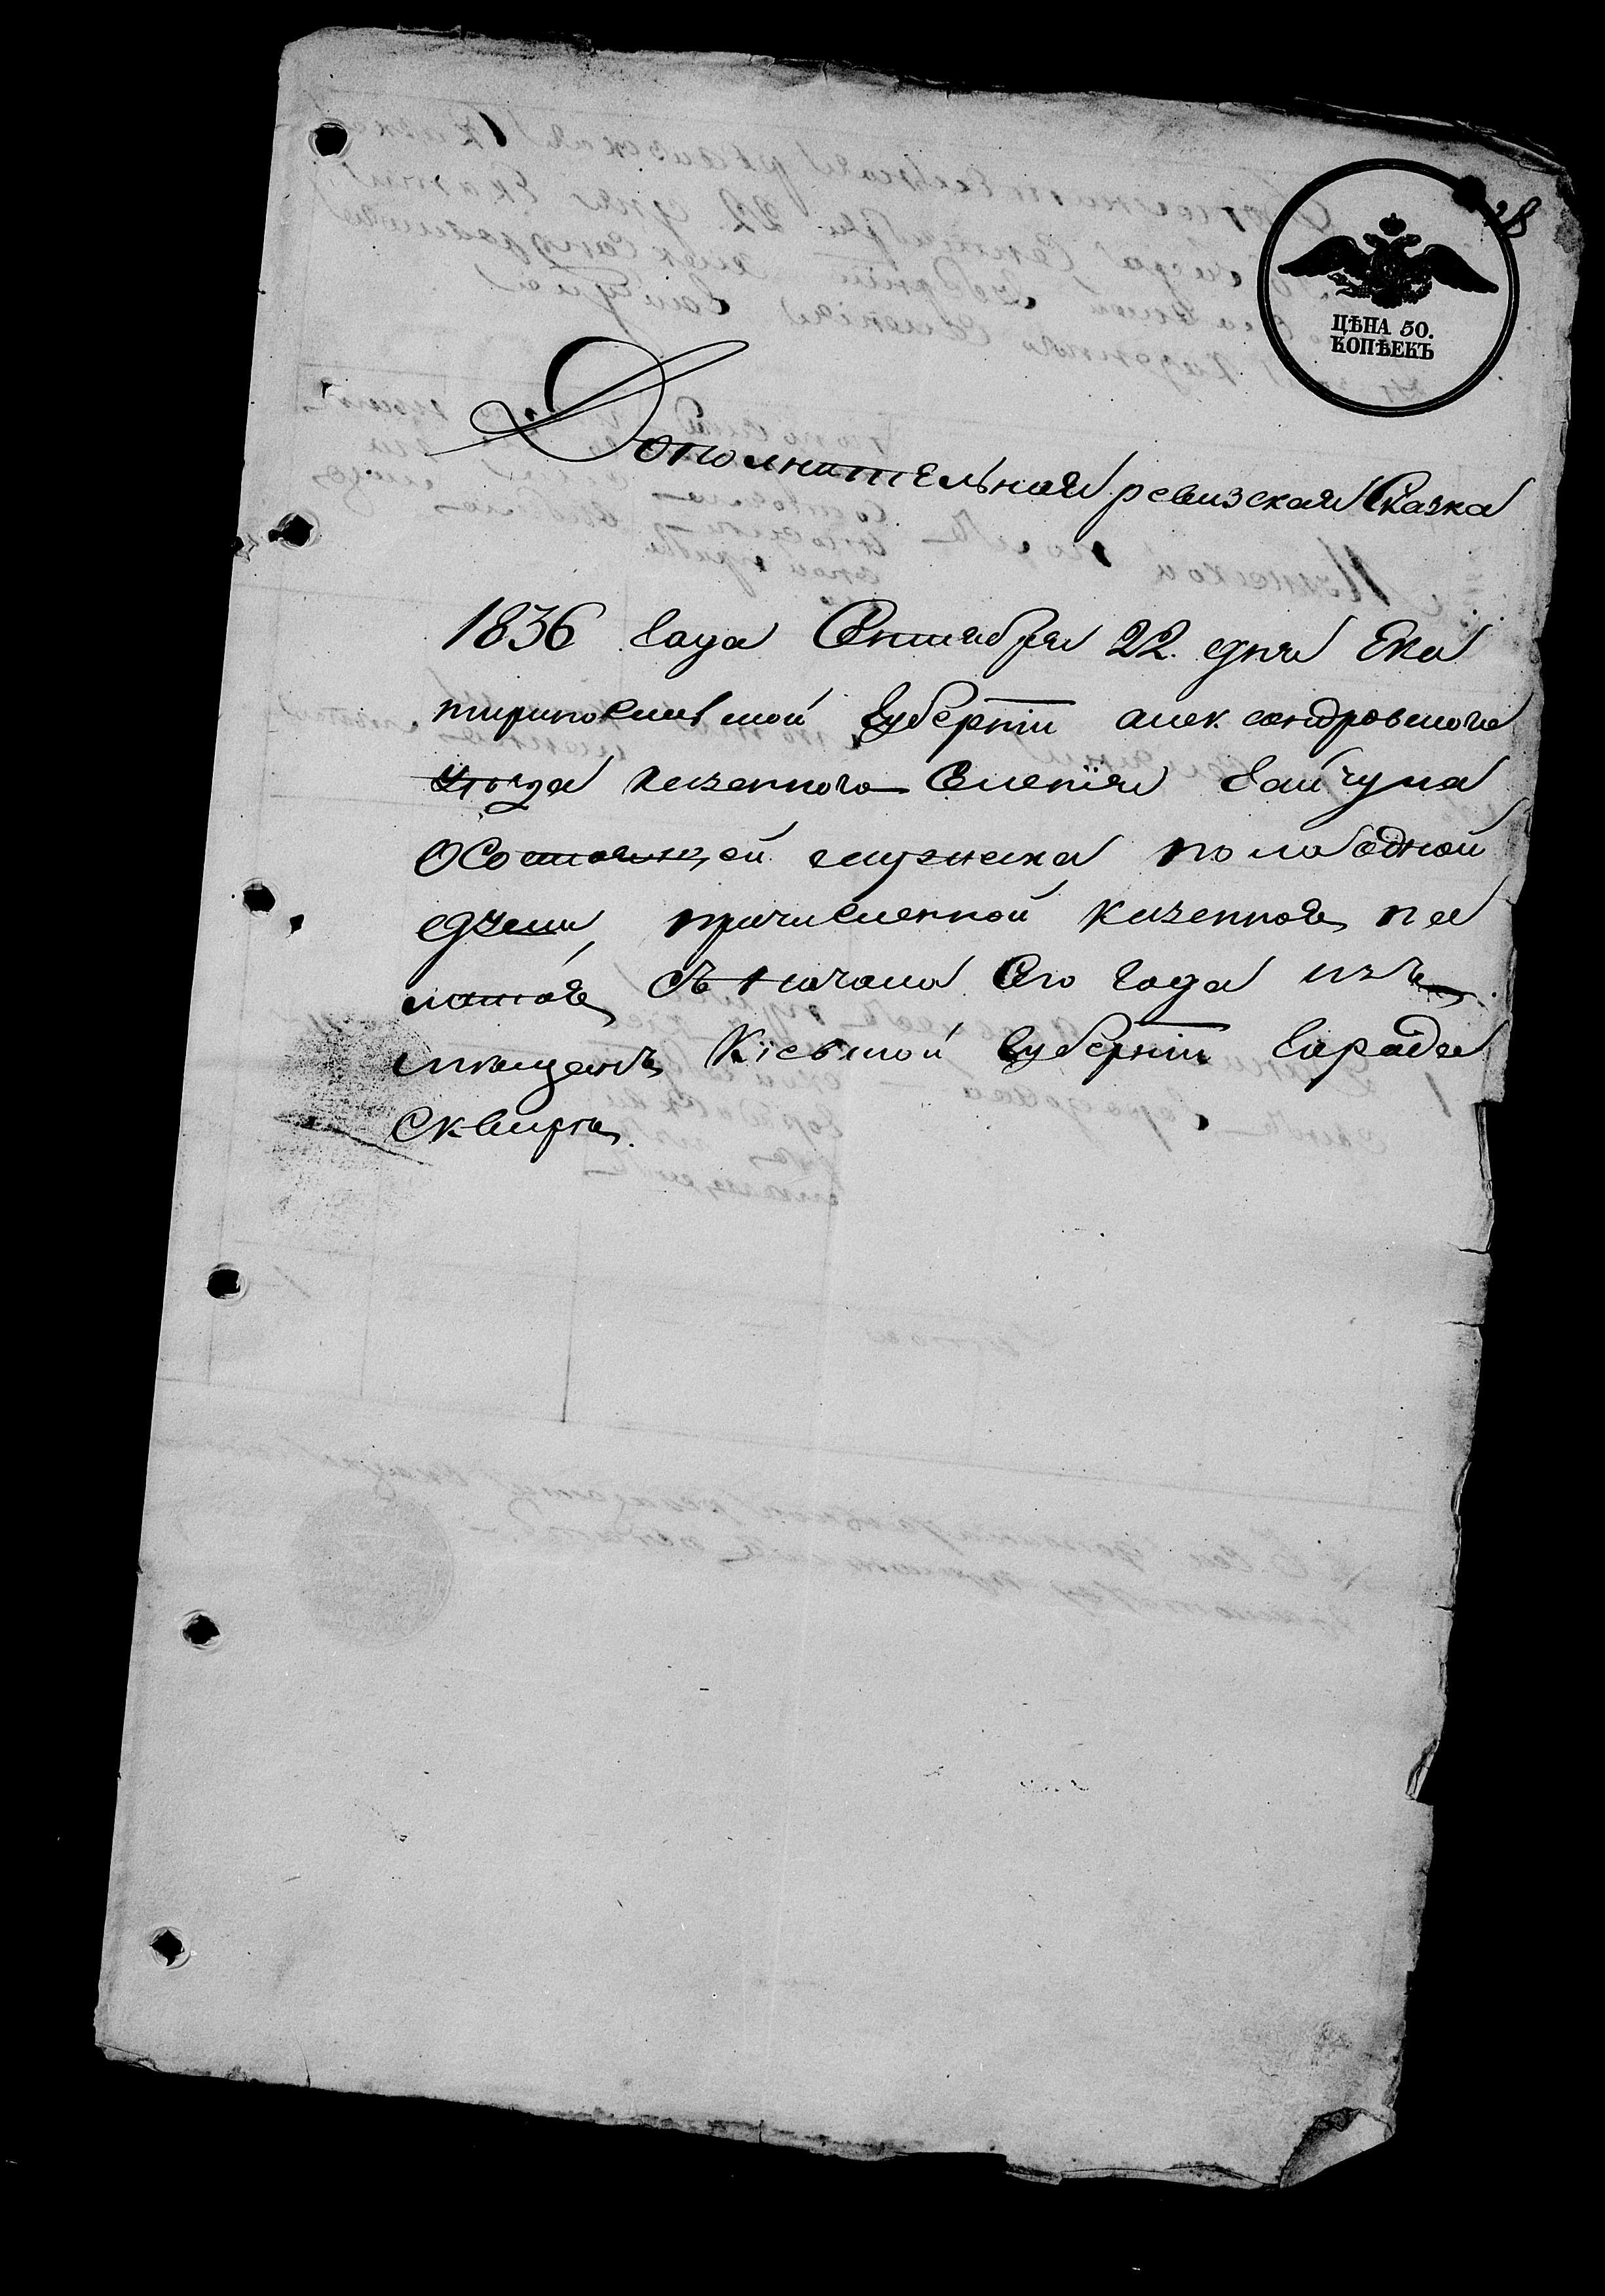 28
ЦѢНА 50.
КОПѢЕКЪ
Дополнительная ревизская Сказка
1836 Года Сентября 22. дня Ека
тиринославской Губерніи александровскаго
уѣзда казенного Селенія Гайчула
О Состоящей мужеска пола одной
души причисленной казенною па
латою съ начала Сего Года изъ
мѣщанъ Кіевской Губерніи Города
Сквиры.